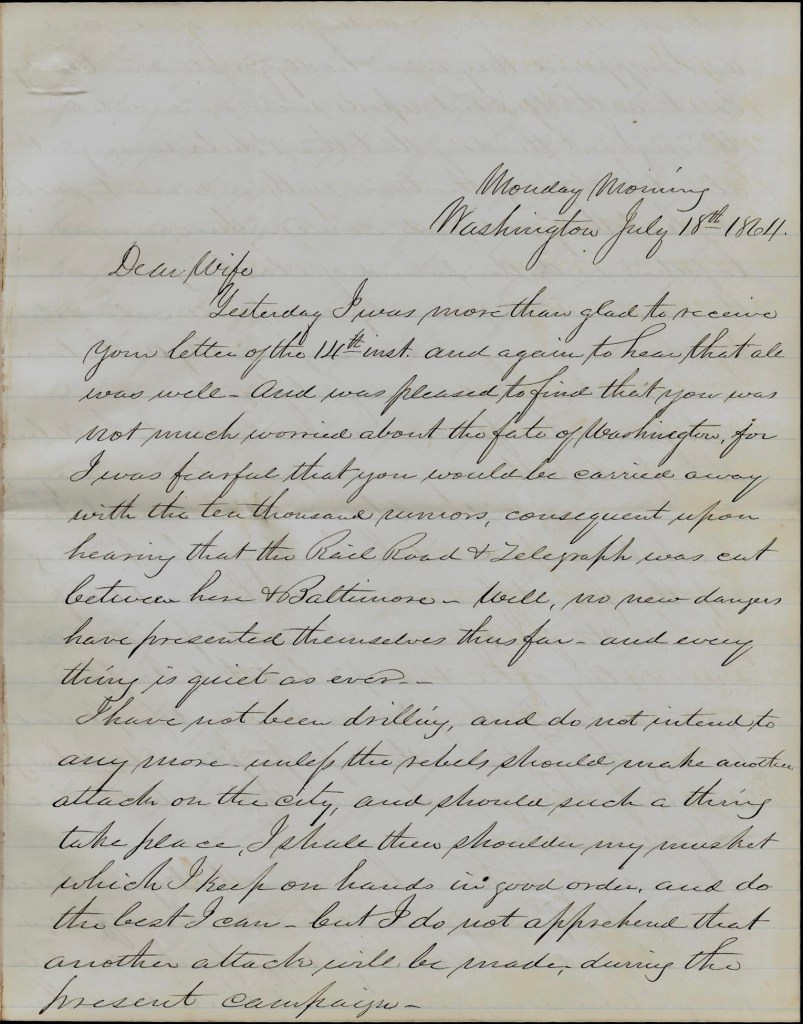 Monday Morning
Washington July 18th 1864.
Dear Wife
Yesterday I was more than glad to receive
your letter of the 14th inst. and again to hear that all
was well - And was pleased to find that you was
not much worried about the fate of Washington, for
I was fearful that you would be carried away
with the ten thousand rumors, consequent upon
hearing that the Rail Road & Telegraph was cut
between here & Baltimore - Well, no new dangers
have presented themselves thus far - and every
thing is quiet as ever. -
I have not been drilling, and do not intend to
any more - unless the rebels should make another
attack on the city, and should such a thing
take place, I shall then shoulder my musket
which I keep on hands in good order, and do
the best I can - but I do not apprehend that
another attack will be made, during the
present campaign -